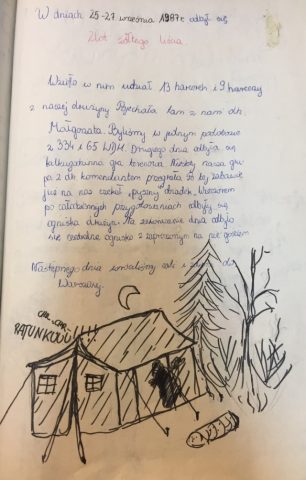 W dniach 25-27 września 1987r. odbył się
Zlot żółtego liścia.
Wzięło w nim udział 13 harcerek i 9 harcerzy
z naszej drużyny. Pojechała tam z nami dh.
Małgorzata. Byliśmy w jednym podobozie
z 334 i 65 WDH. Drugiego dnia odbyła się
całotygodniowa gra terenowa. Niestety nasza gru-
pa z dh. komendantem przegrała. Po tej zabawie
już na nas czekał „pyszny" obiadek. Wieczorem
po całodziennych przygotowaniach odbyły się
ogniska drużyn. Na zakończenie dnia odbyło
się wspólne ognisko z zaproszonym na nie gościem
Następnego dnia wróciliśmy cali i zdrowi do
Warszawy.
RATUNKUUU!!!!